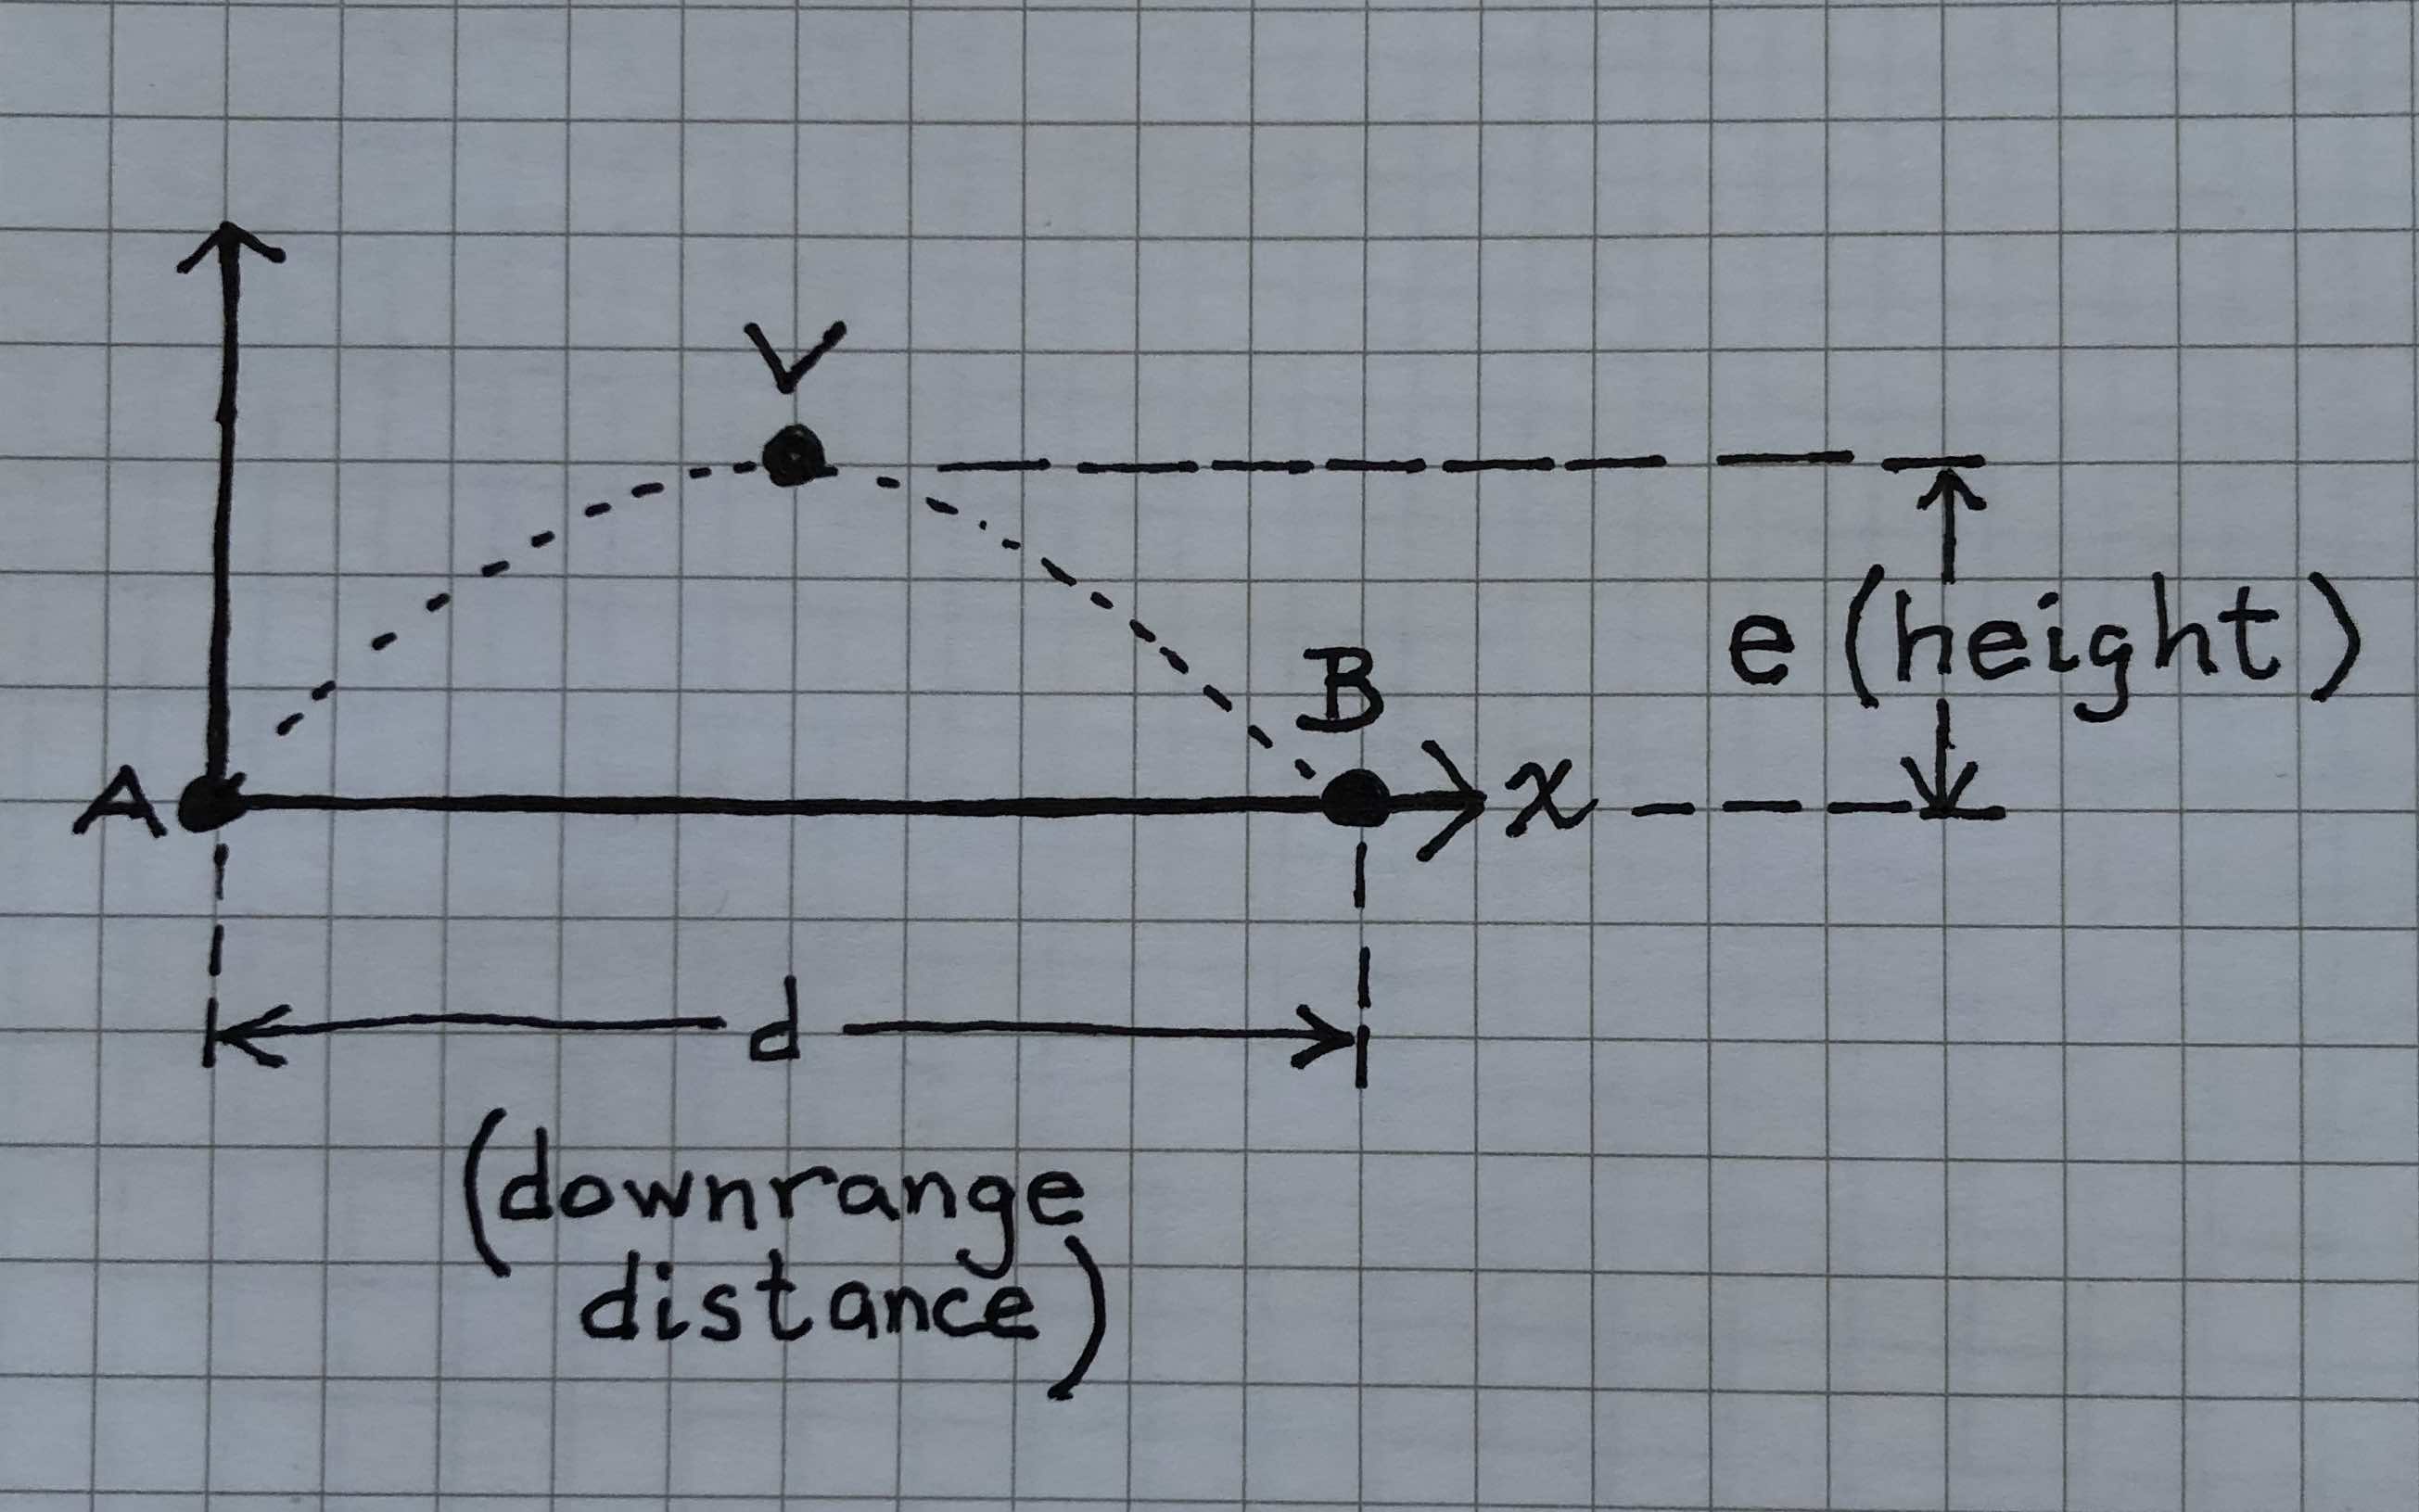 V
B
e (height)
A
x
d
(downrange
distance)